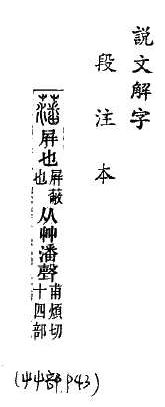 說文解字
段注本
藩屏也屏蔽也从艸潘聲甫煩切十四部
(艸部P43)